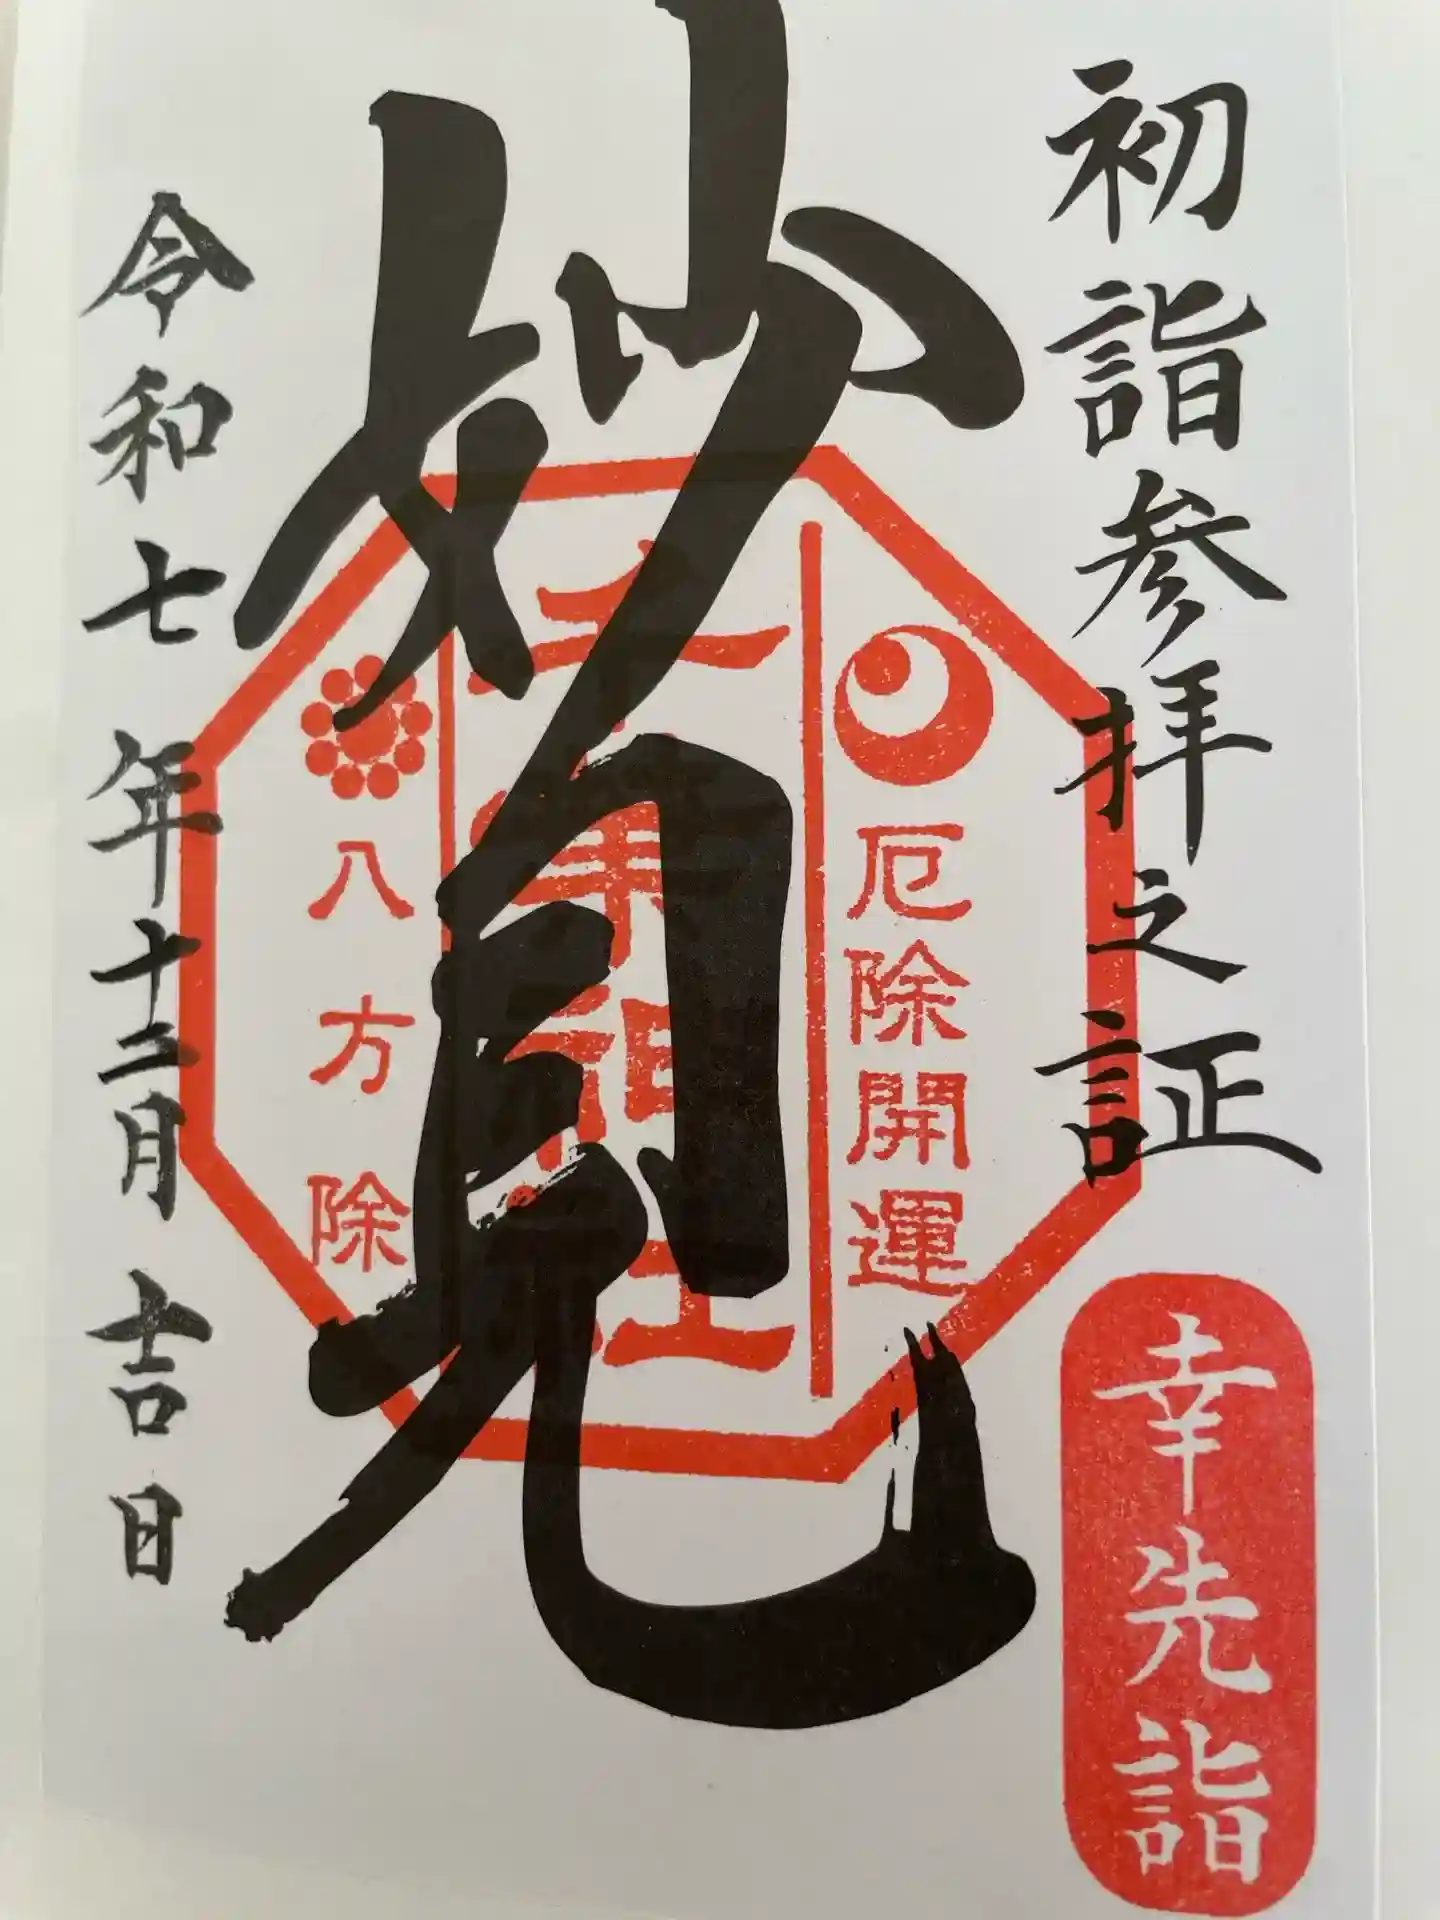 初詣参拝之証
幸先詣
厄除開運
妙見
千葉神社
八方除
令和七年十二月吉日